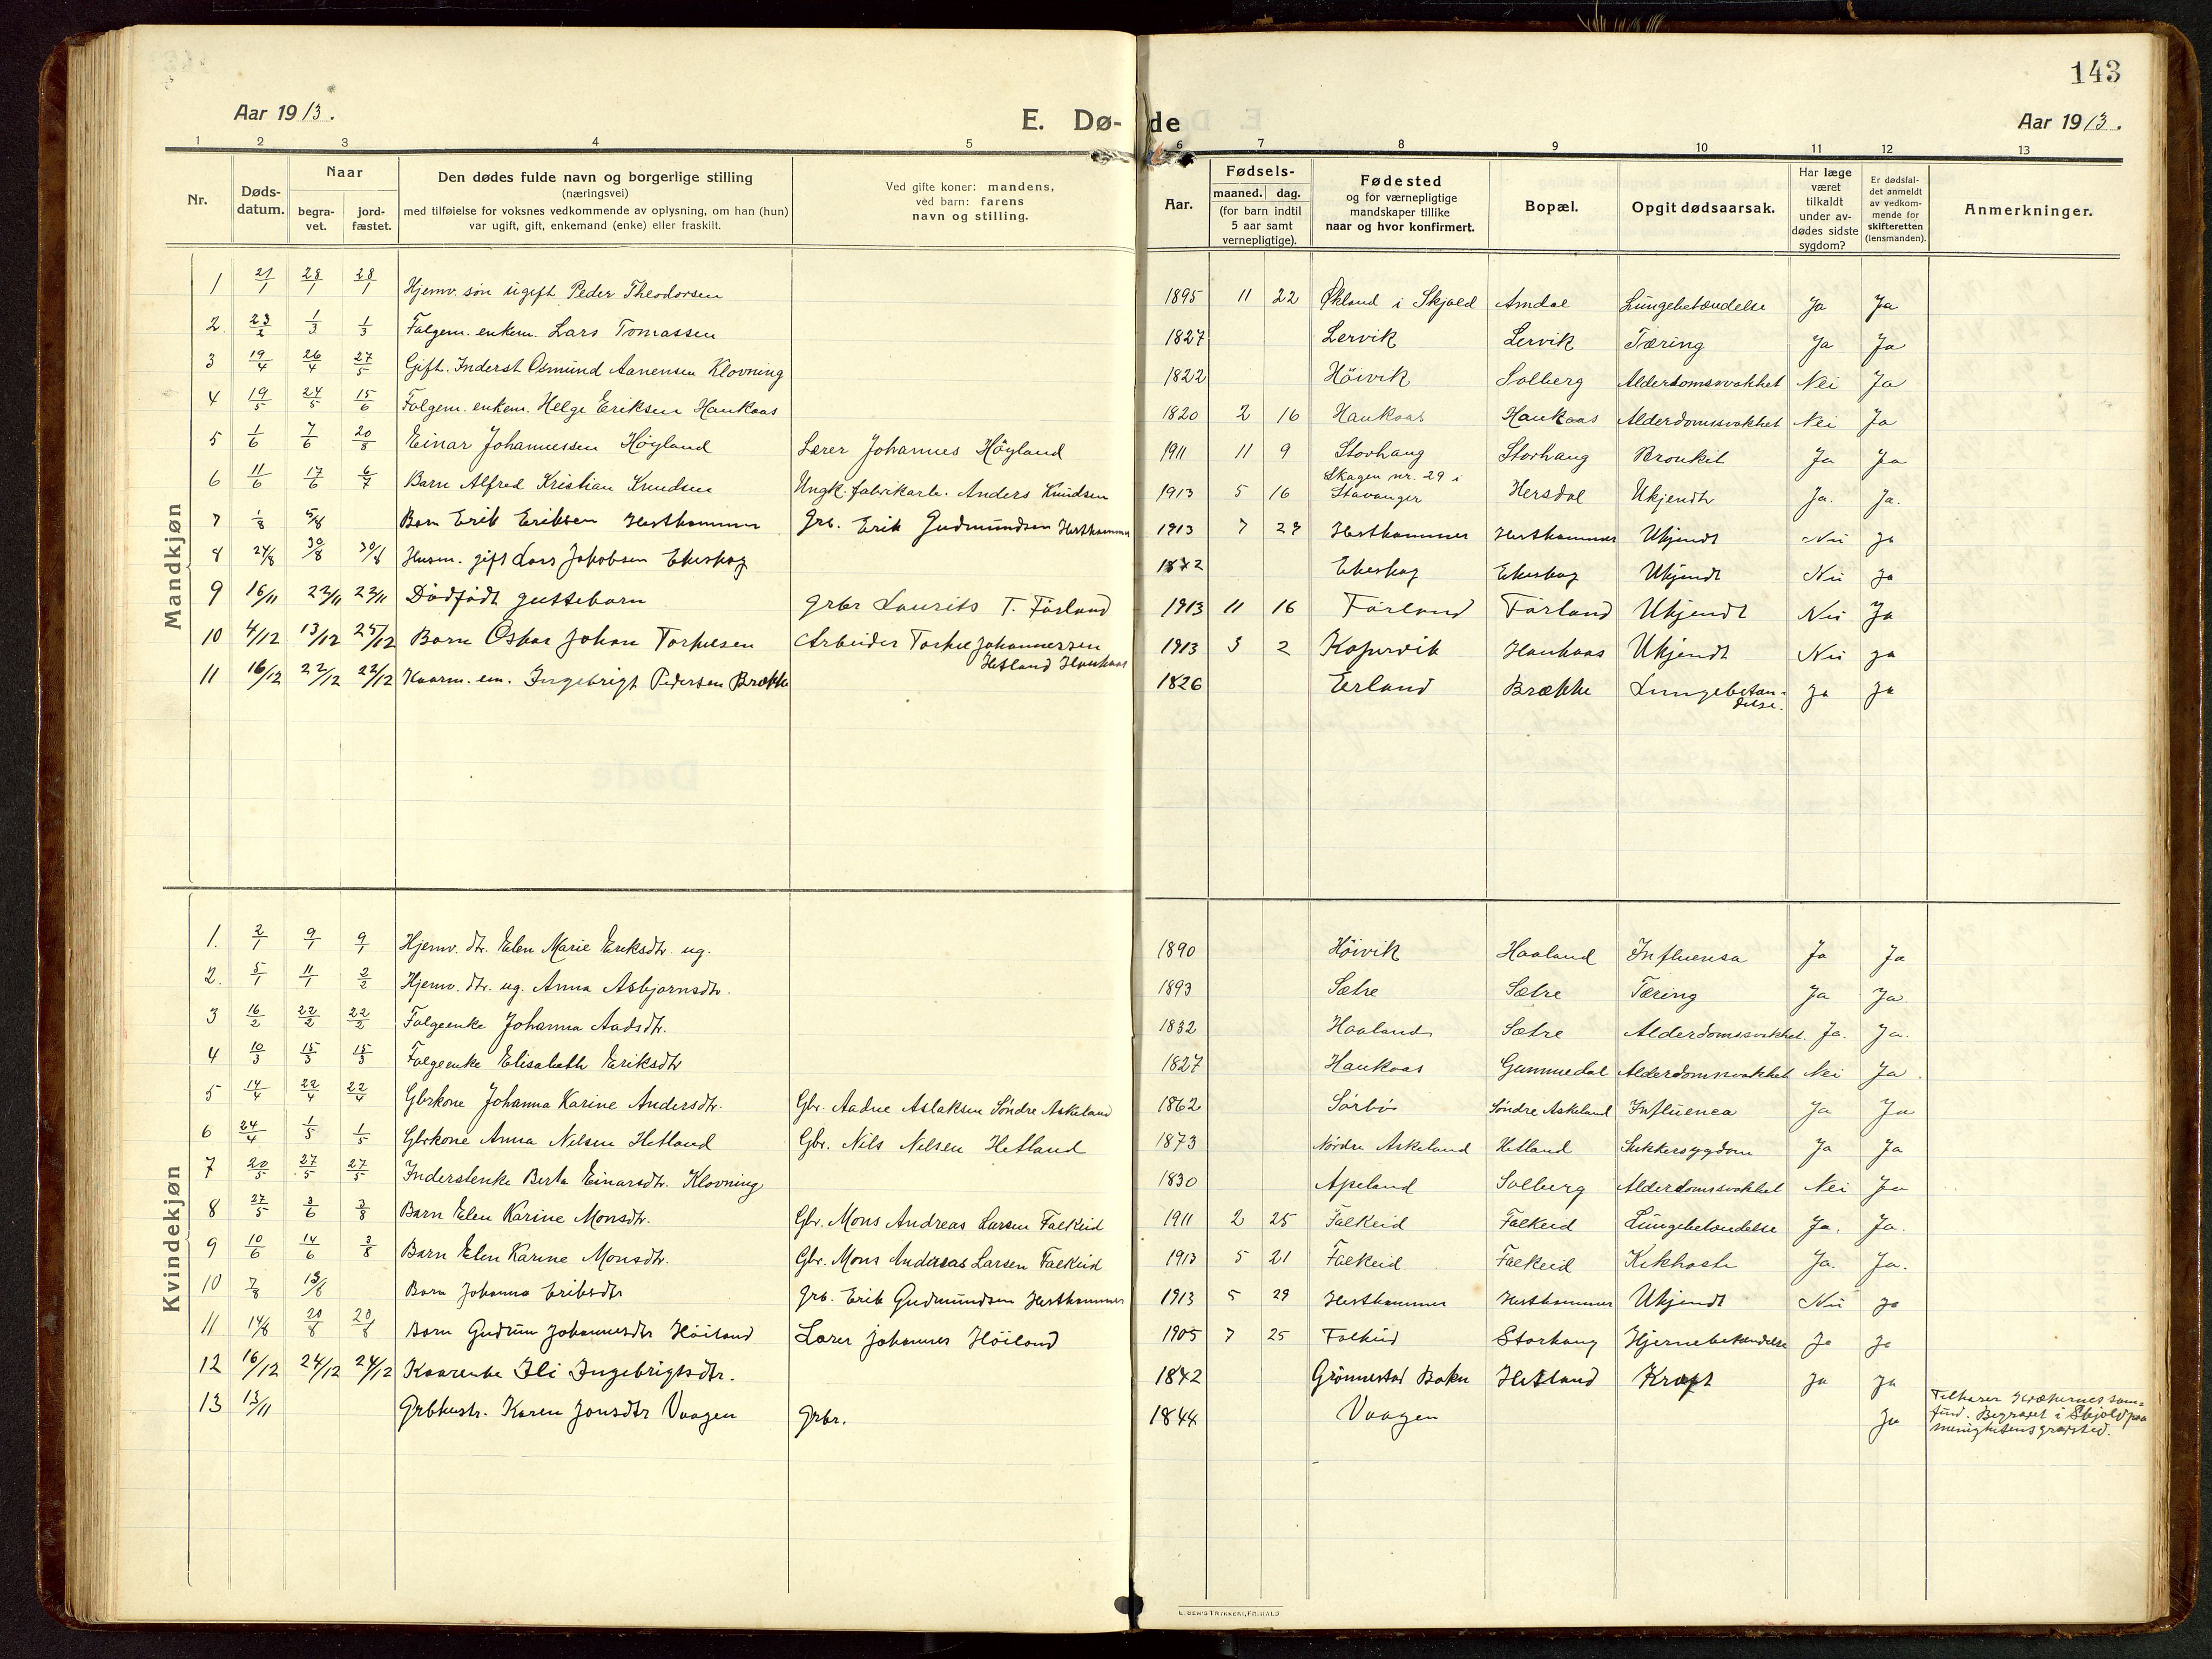 143
Aar 1913.
E. Dø-de
Aar 1913.
1 2 3 4 5 6 7 8 9 10 11 12 13
Nr.
Døds-datum.
Naar
begra-vet.
jord-fæstet.
Den dødes fulde navn og borgerlige stilling
(næringsvei)
med tilføielse for voksnes vedkommende av oplysning, om han (hun)
var ugift, gift, enkemand (enke) eller fraskilt.
Ved gifte koner: mandens,
ved barn: farens
navn og stilling.
Aar.
Fødsels-
maaned. dag.
(for barn indtil
5 aar samt
vernepligtige).
Fødested
og for værnepligtige
mandskaper tillike
naar og hvor konfirmert.
Bopæl.
Opgit dødsaarsak.
Har læge
været
tilkaldt
under av-
dødes sidste
sygdom?
Er dødsfal-
det anmeldt
av vedkom-
mende for
skifteretten
(lensmanden).
Anmerkninger.
Mandkjøn
1 21/1 28/1 28/1 Hjemv. søn ugift Peder Theodorsen 1895 11 22 Økland i Skjold Amdal Lungebetændelse Ja Ja
2. 23/2 1/3 1/3 Folgem. enkem. Lars Tomassen 1827 Lervik Lervik Tæring Ja Ja
3 19/4 26/4 27/5 Gift. Inderst Osmund Aanensen Klovning 1822 Höivik Solberg Alderdomssvakhet Nei Ja
4 19/5 24/5 15/6 Folgem. enkem. Helge Eriksen Haukaas 1820 2 16 Haukaas Haukaas Alderdomssvakhet Nei Ja
5 1/6 7/6 20/8 Einar Johannessen Höyland Lærer Johannes Höyland 1911 11 9 Storhaug Storhaug Bronkit Ja Ja
6 11/6 17/6 6/7 Barn Alfred Kristian Knudsen Ungk. fabrikarb. Anders Knudsen 1913 5 16 Skagen nr. 29 i Stavanger Hersdal Ukjendt Ja. Ja.
7 1/8 5/8 Barn Erik Eriksen Hesthammer Grb. Erik Gudmundsen Hesthammer 1913 7 29 Hesthammer Hesthammer Ukjendt Nei Ja
8 24/8 30/8 30/8 Husm. gift Lars Jakobsen Ekeskog 1872 Ekeskog Ekeskog Ukjendt Nei Ja
9 16/11 22/11 22/11 Dödfödt guttebarn Grbr Laurits T. Förland 1913 11 16 Förland Förland Ukjendt Nei Ja
10 4/12 13/12 25/12 Barn Oskar Johan Torkelsen Arbeider Torkel Johannessen Hetland Haukaas 1913 3 2 Kopervik Haukaas Ukjendt Nei Ja
11 16/12 22/12 22/12 Kaarm. em. Ingebrigt Pedersen Brække 1826 Erland Brække Lungebetændelse. Ja Ja
Kvindekjøn
1. 2/1 9/1 9/1 Hjemv. dtr. Elen Marie Eriksdtr. ug. 1890 Höivik Haaland Influensa Ja Ja
2. 5/1 11/1 2/2 Hjemv. dtr. ug. Anna Asbjornsdtr. 1893 Sætre Sætre Tæring Ja Ja.
3 16/2 22/2 22/2 Folgeenke Johanna Aadsdtr. 1832 Haaland Sætre Alderdomssvakhet. Ja. Ja.
4 10/3 15/3 15/3 Folgeenke Elisabeth Eriksdtr 1827 Haukaas Gummedal Alderdomssvakhet Nei Ja.
5 14/4 22/4 22/4 Gbrkone Johanna Karine Andersdtr. Gbr. Aadne Aslaksen Söndre Askeland 1862 Sörbö Söndre Askeland Influenca Ja Ja
6 24/4 1/5 1/5 Gbrkone Anna Nelsen Hetland Gbr. Nils Nelsen Hetland 1873 Nördre Askeland Hetland Sukkersygdom Ja Ja
7 20/5 27/5 27/5 Inderstenke Berta Einarsdtr. Klovning 1830 Apeland Solberg Alderdomssvakhet Nei Ja
8 27/5 3/6 3/8 Barn Elen Karine Monsdtr. Gbr. Mons Andreas Larsen Falkeid 1911 2 25 Falkeid Falkeid Lungebetændelse Ja. Ja.
9 10/6 14/6 3/8 Barn Elen Karine Monsdtr. Gbr. Mons Andreas Larsen Falkeid 1913 5 21 Falkeid Falkeid Kikhoste Ja. Ja.
10 7/8 13/8 Barn Johanna Eriksdtr Grb. Erik Gudmundsen Hesthammer 1913 5 29 Hesthammer Hesthammer Ukjendt Nei Ja
11 14/8 20/8 20/8 Barn Gudrun Johannesdtr Höiland Lærer Johannes Höiland 1905 7 25 Falkeid Storhaug Hjernebetændelse Ja Ja
12 16/12 24/12 24/12 Kaarenke Ili Ingebrigtsdtr. 1842 Grönnestad Bokn Hetland Kræft Ja Ja
13 13/11 Grbkustr. Karen Jonsdtr Vaagen Grbr. 1844 Vaagen Ja Tilhører Kvækernes sam=
fund. Begravet i Skjold paa
menighetens gravsted.